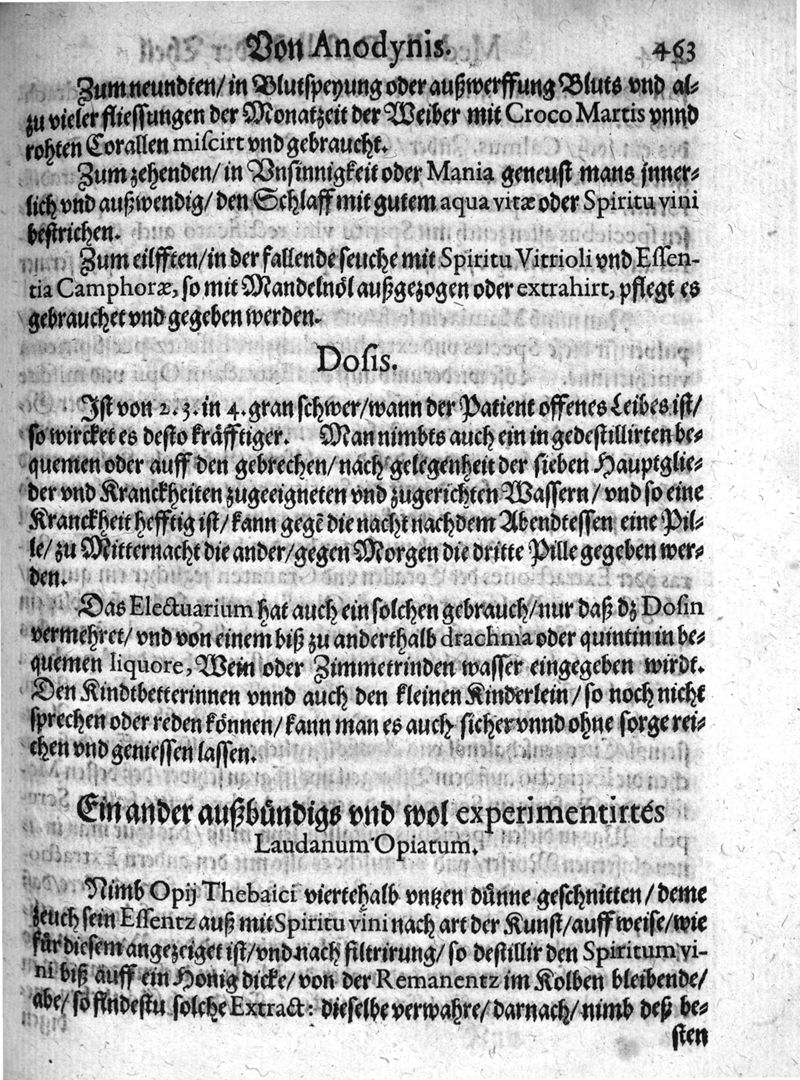 Von Anodynis. 463
Zum neundten/ in Blutspeyung oder außwerffung Bluts vnd al-
zu vieler fliessungen der Monatzeit der Weiber mit Croco Martis vnnd
rohten Corallen miscirt vnd gebraucht.
Zum zehenden/ in Vnsinnigkeit oder Mania geneust mans jnner-
lich vnd außwendig/ den Schlaff mit gutem aqua vitæ oder Spiritu vini
bestrichen.
Zum eilfften/ in der fallende seuche mit Spiritu Vitrioli vnd Essen-
tia Camphoræ, so mit Mandelnöl außgezogen oder extrahirt, pflegt es
gebrauchet vnd gegeben werden.
Dosis.
Ist von 2. 3. in 4. gran schwer/ wann der Patient offenes Leibes ist/
so wircket es desto kräfftiger. Man nimbts auch ein in gedestillirten be-
quemen oder auff den gebrechen/ nach gelegenheit der sieben Hauptglie-
der vnd Kranckheiten zugeeigneten vnd zugerichten Wassern/ vnd so eine
Kranckheit hefftig ist/ kann gegē die nacht nach dem Abendtessen eine Pil-
le/ zu Mitternacht die ander/ gegen Morgen die dritte Pille gegeben wer-
den.
Das Electuarium hat auch ein solchen gebrauch/ nur daß dz Dosin
vermehret/ vnd von einem biß zu anderthalb drachma oder quintin in be-
quemen liquore, Wein oder Zimmetrinden wasser eingegeben wirdt.
Den Kindtbetterinnen vnnd auch den kleinen Kinderlein/ so noch nicht
sprechen oder reden können/ kann man es auch sicher vnnd ohne sorge rei-
chen vnd geniessen lassen.
Ein ander außbündigs vnd wol experimentirtes
Laudanum Opiatum.
Nimb Opij Thebaici viertehalb vntzen dünne geschnitten/ deme
zeuch sein Essentz auß mit Spiritu vini nach art der Kunst/ auff weise/ wie
für diesem angezeiget ist/ vnd nach filtrirung/ so destillir den Spiritum vi-
ni biß auff ein Honig dicke/ von der Remanentz im Kolben bleibende/
abe/ so findestu solche Extract: dieselbe verwahre/ darnach/ nimb deß be-
sten